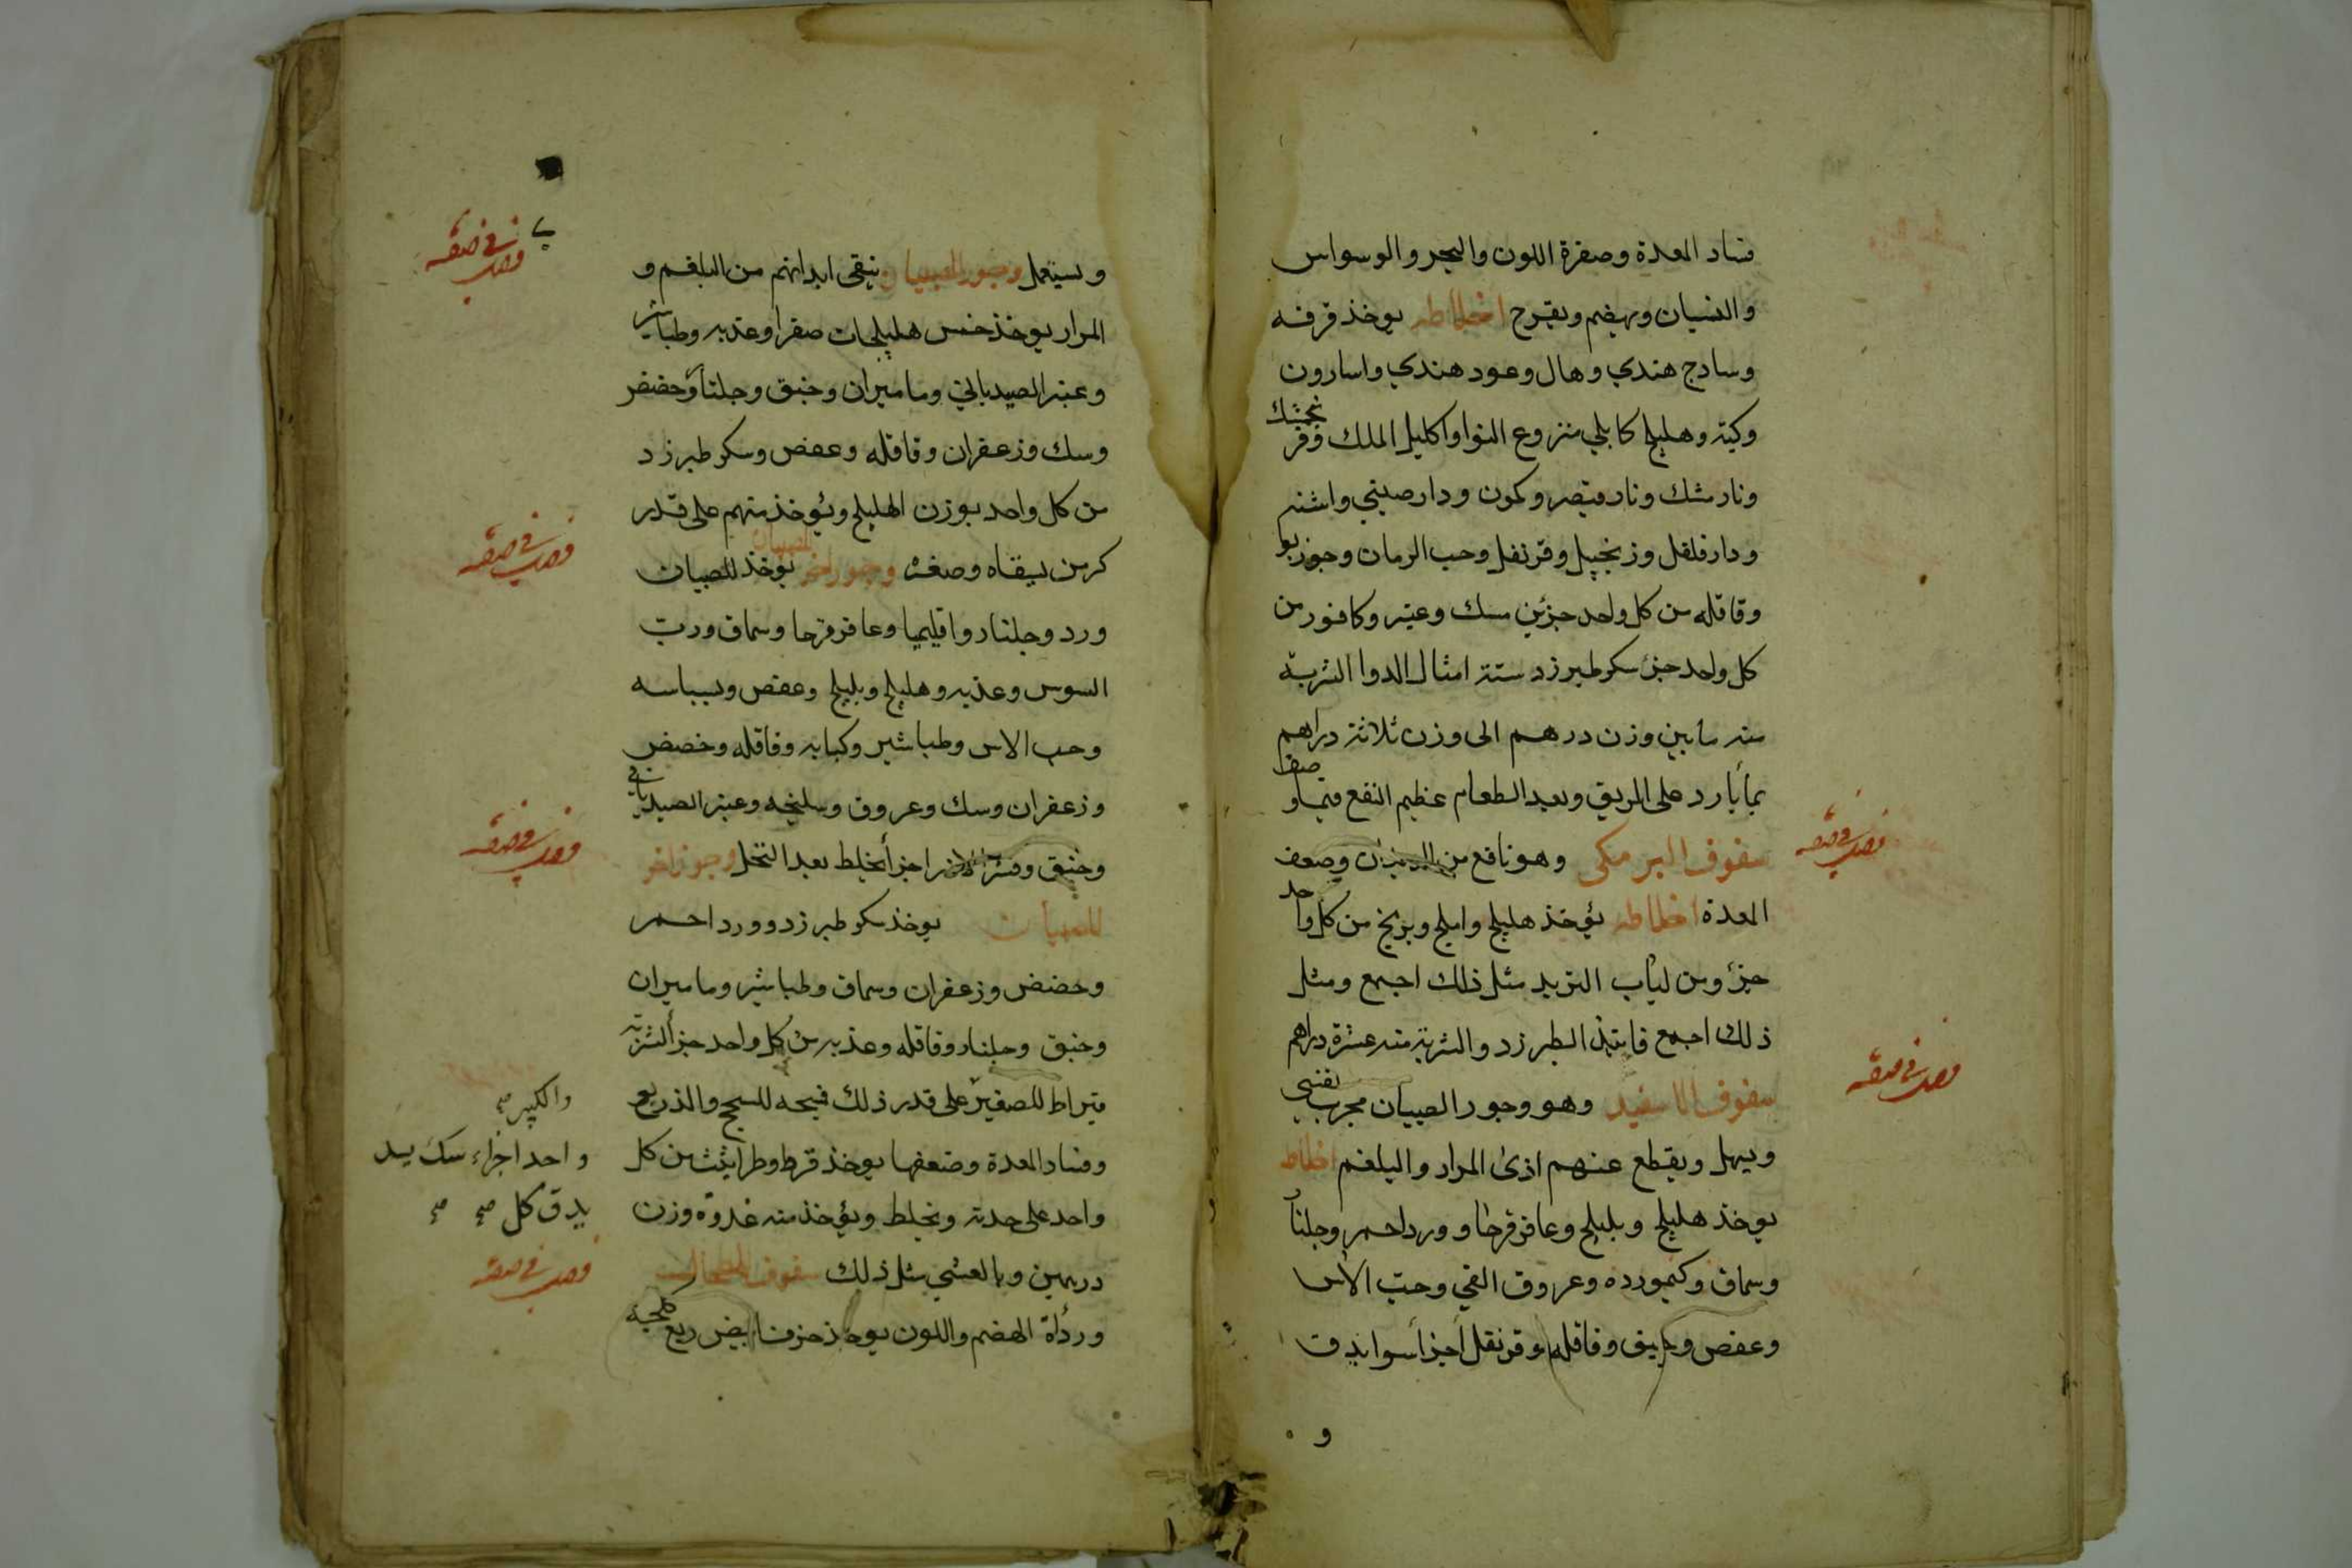 فساد المعدة وصفرة اللون والبخر والوسواس
والنسيان ويهضم ويفرح اخلاطه يوخذ قرفه
وسادج هندي وهال وعود هندي واسارون
وكيه وهليلج كابلي منزوع النوا واكليل الملك وفرنجمشك
ونارمشك ونارقيصر وكمون ودارصيني واشنه
ودارفلفل وزنجبيل وقرنفل وحب الرمان وجوزبوا
وقاقله من كل واحد جزئين مسك وعنبر وكافور من
كل واحد جزء سكر طبرزد ستة امثال الدوا الشربة
منه ما بين وزن درهم الى وزن ثلاثة دراهم
بماء بارد على الريق وبعد الطعام عظيم النفع فيما وصفنا
سفوف البرمكي وهو نافع من وضعف
المعدة اخلاطه يؤخذ هليلج واملج وبرنج من كل واحد
جزء ومن لباب التربد مثل ذلك اجمع ومثل
ذلك اجمع فانيذ الطبرزد والشربة منه عشرة دراهم
سفوف الاسفيد وهو وجور الصبيان مجرب
ويسهل ويقطع عنهم اذى المرار والبلغم اخلاطه
يوخذ هليلج وبليلج وعاقرقرحا وورد احمر وجلنار
وسماق وكيموردة وعروق الفي وحب الآس
وعفص وخربق وقاقله وقرنفل اجزأ سوا يدق
و
فصد في صفة
فصد في صفة
ويستعمل وجور للصبيان ينقي ابدانهم من البلغم و
المرار يوخذ خمس هليلجات صفر او عذبه وطباشير
وعنبر الصيدباني وماميران وخبق وجلنار وحضض
وسك وزعفران وقاقله وعفص وسكر طبرزد
من كل واحد بوزن الهليلج ويؤخذ منهم على قدر
كبر من يسقاه وصغره وجور اخر للصبيان يوخذ للصبيان
ورد وجلنار واقليميا وعاقرقرحا وسماق ورب
السوس وعذبه وهليلج وبليلج وعفص وبسباسه
وحب الاس وطباشير وكبابه وقاقله وحضض
وزعفران وسك وعروق وسليخه وعنبر الصيدباني
وخبق وقشر اجزأ يخلط بعد النخل وجور اخر
للصبيان يوخذ سكر طبرزد وورد احمر
وحضض وزعفران وسماق وطباشير وماميران
وخبق وجلنار وقاقله وعذبه من كل واحد جزأ الشربة
قيراط للصغير على قدر ذلك فيجه للسحج والذريع
وفساد المعدة وضعفها يوخذ قرط وطراثيث من كل
واحد على حدته ويخلط ويؤخذ منه غدوة وزن
درهمين وبالعشي مثل ذلك سفوف للطحال
ورداءة الهضم واللون يوخذ خزف ابيض ربع كلجه
فصد في صفة
فصد في صفة
فصد في صفة
والكبير صح
واحد اجزاء سك
يدق كل صح صح
فصد في صفة